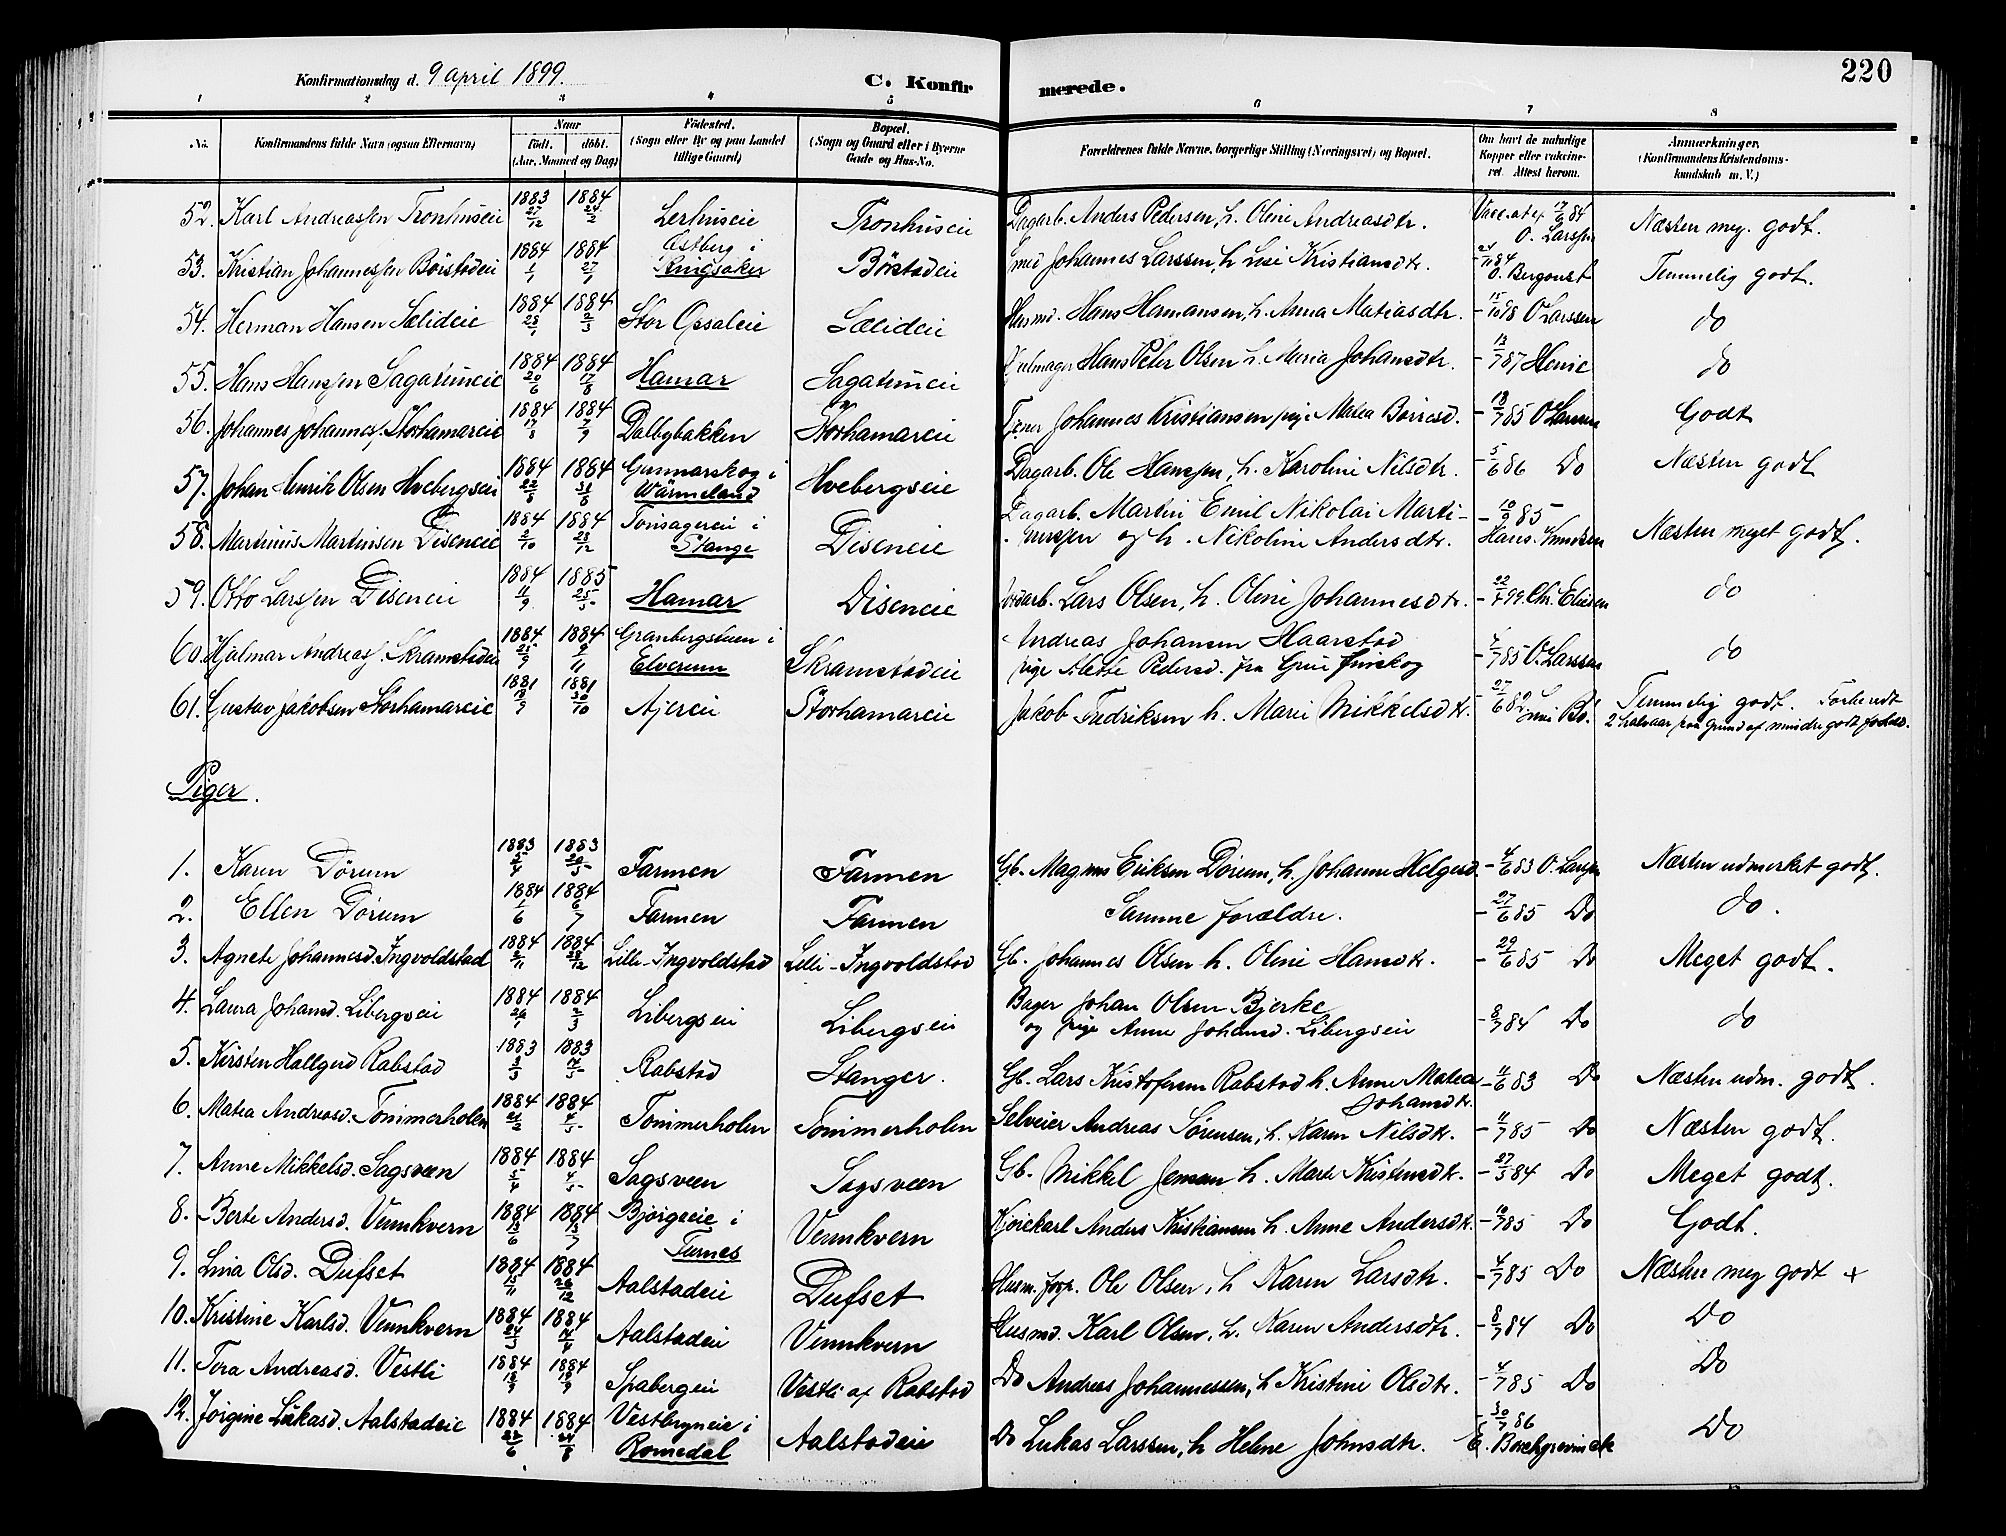 220
Konfirmationsdag d. 9 april 1899.
C. Konfirmerede.
1 2 3 4 5 6 7 8
No. Konfirmandens fulde Navn (ogsaa Efternavn)
Naar født. døbt. (Aar, Maaned og Dag)
Fødested. (Sogn eller By og paa Landet tillige Gaard)
Bopæl. (Sogn og Gaard eller i Byerne Gade og Hus-No.
Forældrenes fulde Navne, borgerlige Stilling (Næringsvei) og Bopæl.
Om havt de naturlige Kopper eller vakcineret. Attest herom.
Anmærkninger. (Konfirmandens Kristendomskundskab m. V.)
52. Karl Andreassen Tronhuseie 1883 27/12 1884 Lerhuseie Tronhuseie Dagarb. Anders Pedersen, h. Oline Andreasdtr. O. Larssen Næsten meg. godt.
53. Kristian Johannessen Børstadeie 1884 1884 Østberg i Ringsaker Børstadeie Smed Johannes Larssen, h. Lise Kristiansdtr. O. Bergquist Temmelig godt.
54. Herman Hansen Sælideie 1884 28/1 1884 9/3 Stor Opsaleie Sælideie Husmd. Hans Hamansen, h. Anna Matiasdtr. 15/10 98 O Larssen do
55. Hans Hanssen Sagatuneie 1884 20/6 1884 17/8 Hamar Sagatuneie Hjulmager Hans Peter Olsen h. Maria Johansdtr. 13/7 87 Henie do
56. Johannes Johanness. Storhamareie 1884 17/8 1884 7/9 Dalbybakken Storhamareie Tjener Johannes Kristiansen, pige Matea Børresd. 18/7 85 O Larssen Godt
57. Johan Henrik Olsen Hvebergseie 1884 1884 Gunnarskog i Wärmeland Hvebergseie Dagarb. Ole Hanssen, h. Karoline Nilsdtr. 5/6 86 Do Næsten godt
58. Martinius Martinsen Diseneie 1884 2/10 1884 28/12 Tomsagereie i Stange Diseneie Dagarb. Martin Emil Nikolai Marti-
nussen og h. Nikoline Andersdtr. 10/9 85 Hans Knudsen Næsten meget godt.
59. Otto Larssen Diseneie 1884 11/9 1885 25/5 Hamar Diseneie Jordarb. Lars Olsen, h. Oline Johannesdtr. 99. Chr. Eliesen do
60. Hjalmar Andreas. Skramstadeie 1884 25/9 1884 9/11 Granbergstuen i Elverum Skramstadeie Andreas Johansen Haarstad
pige Alette Pedersd. fra Grue Finskog 7/7 85 O. Larssen do
61. Gustav Jakobsen Storhamareie 1881 18/9 1881 30/10 Ajereie Storhamareie Jakob Fredriksen h. Marie Mikkelsdtr. 27/6 82 Temmelig godt. Forberedt
2 halvaar paa Grund af mindre godt forhold.
Piger.
1. Karen Dørum 1883 5/4 1883 20/5 Farmen Farmen Gb. Magnus Eriksen Dørum, h. Johanne Helgesd. 4/6 83 O. Larssen Næsten udmerket godt.
2. Ellen Dørum 1884 1/6 1884 6/7 Farmen Farmen Samme forældre. 27/6 85 Do do.
3. Agnete Johannesd. Ingvoldstad 1884 2/11 1884 28/12 Lille-Ingvoldstad Lille-Ingvoldstad Gb. Johannes Olsen h. Oline Hansdtr. 29/6 85 Do Meget godt.
4. Laura Johansd. Libergseie 1884 1884 2/3 Libergseie Libergseie Bager Johan Olsen Bjerke
og pige Anne Johansd. Libergseie 8/7 84 Do do
5. Kirsten Hallgerd Rabstad 1883 3/3 1883 14/5 Rabstad Stanger. Gb. Lars Kristofersen Rabstad h. Anne Matea Johansdtr. 11/6 83 Do Næsten udm. godt.
6. Matea Andreasd. Tømmerholen 1884 25/2 1884 4/5 Tømmerholen Tømmerholen Selveier Andreas Sørensen, h. Karen Nilsdtr. 11/7 85 Do Næsten godt.
7. Anne Mikkelsd. Sagsveen 1884 5/4 1884 4/5 Sagsveen Sagsveen Gb. Mikkel Jensen h. Marte Kristensdtr. 27/5 84 Do Meget godt.
8. Berte Andersd. Vennkvern 1884 13/6 1884 13/7 Bjørgeeie i Furnes Vennkvern Kjørekarl Anders Kristiansen h. Anne Andersdtr. 10/7 85 Do Godt.
9. Lina Olsd. Dufset 1884 15/11 1884 26/12 Aalstadeie Dufset Husm. forp. Ole Olsen, h Karen Larsdtr. 4/7 85 Do Næsten meg godt +
10. Kristine Karlsd. Vennkvern 1884 24/3 1884 14/4 Aalstadeie Vennkvern Husmd. Karl Olsen, h. Karen Andersdtr. 8/7 84 Do Do
11. Tora Andreasd. Vestli 1884 1884 Spabergeie Vestli af Rabstad Do Andreas Johannessen, h Kristine Olsdtr. 4/7 85 Do Do
12. Jørgine Lukasd. Aalstadeie 1884 22/6 1884 24/8 Vestbyneie i Romedal Aalstadeie Do Lukas Larssen, h Helene Johnsdtr. 30/7 86 E. Borchgrevinck Do